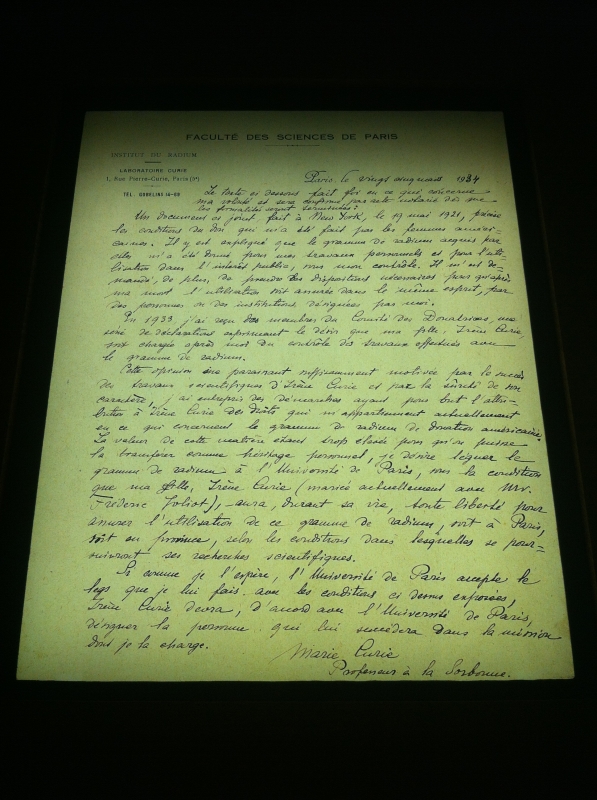 FACULTÉ DES SCIENCES DE PARIS
INSTITUT DU RADIUM
LABORATOIRE CURIE
1, Rue Pierre-Curie, Paris (5e)
TÉL. GOBELINS 14-69
Paris, le vingt cinq mars 1934
Le texte ci dessous fait foi en ce qui concerne
ma volonté et sera confirmé par acte notarié dès que
les formalités seront terminées.
Un document ci joint fait à New York, le 19 mai 1921, précise
les conditions du don qui m'a été fait par les femmes améri-
caines. Il y est expliqué que le gramme de radium acquis par
elles m'a été donné pour mes travaux personnels et pour l'uti-
lisation dans l'intérêt public, sous mon contrôle. Il m'est de-
mandé, de plus, de prendre les dispositions nécessaires pour qu'après
ma mort l'utilisation soit assurée dans le même esprit, par
des personnes ou des institutions désignées par moi.
En 1933, j'ai reçu des membres du Comité des Donatrices, une
série de déclarations exprimant le désir que ma fille, Irène Curie,
soit chargée après moi du contrôle des travaux effectués avec
le gramme de radium.
Cette opinion me paraissant suffisamment motivée par le succès
des travaux scientifiques d'Irène Curie et par la sûreté de son
caractère, j'ai entrepris des démarches ayant pour but l'attri-
bution à Irène Curie des droits qui m'appartiennent actuellement
en ce qui concerne le gramme de radium de donation américaine.
La valeur de cette matière étant trop élevée pour qu'on puisse
la transférer comme héritage personnel, je désire léguer le
gramme de radium à l'Université de Paris, sous la condition
que ma fille, Irène Curie (mariée actuellement avec Mr.
Frédéric Joliot), aura, durant sa vie, toute liberté pour
assurer l'utilisation de ce gramme de radium, soit à Paris,
soit en province, selon les conditions dans lesquelles se pour-
suivront ses recherches scientifiques.
Si comme je l'espère, l'Université de Paris accepte le
legs que je lui fais avec les conditions ci dessus exposées,
Irène Curie devra, d'accord avec l'Université de Paris,
désigner la personne qui lui succédera dans la mission
dont je la charge.
Marie Curie
Professeur à la Sorbonne.